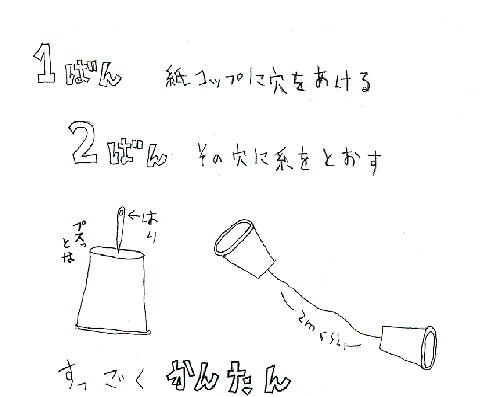 1ばん 紙コップに穴をあける
2ばん その穴に糸をとおす
←はり
プスっとな
2mぐらい
すっごくかんたん